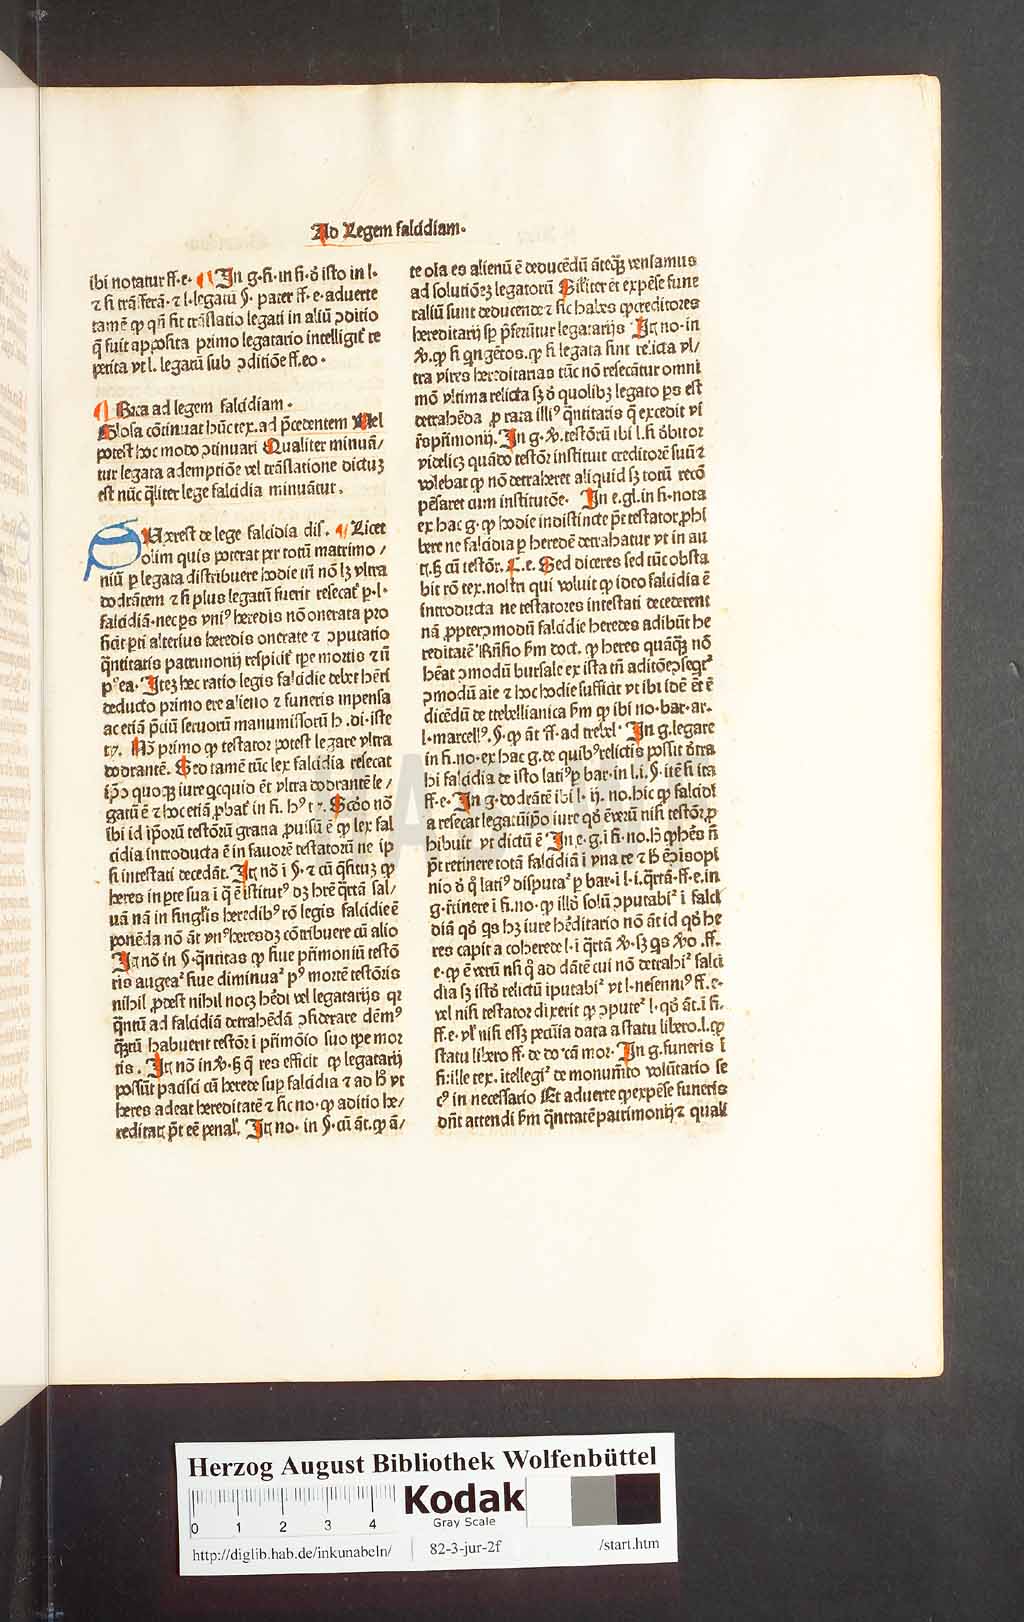 Ad Legem falcidiam.
ibi notatur ff.e. ¶ In g.fi. in fi. ꝟ isto in l.
⁊ si trāsferā. ⁊ l. legatū §. pater ff.e. aduerte
tamē ꝙ qn̄ fit trāslatio legati in aliū ↄditio
q̄ fuit apposita primo legatario intelligit̉ re
petita vt l. legatū sub ↄditiōe ff.eo.
¶ Bꝛica ad legem falcidiam.
Glosa cōtinuat hūc tex. ad p̄cedentem Uel
potest hoc modo ↄtinuari Qualiter minuā/
tur legata ademptiōe vel trāslatione dictuꝫ
est nūc q̄liter lege falcidia minuātur.
Upꝛest de lege falcidia dis. ¶ Licet
olim quis poterat per totū matrimo/
niū ꝑ legata distribuere hodie tn̄ nō lꝫ vltra
dodrātem ⁊ si plus legatū fuerit resecat̉ ꝑ.l.
falcidiā. nec ꝑs vniꝰ heredis nō onerata pro
ficit ꝑti alterius heredis onerate ⁊ ↄputatio
q̄ntitatis patrimonij respicit̉ tꝑe mortis ⁊ nō
pꝰea. Iteꝫ hec ratio legis falcidie debet hr̄i
deducto primo ere alieno ⁊ funeris inpensa
ac etiā p̄ciū seruorū manumissorū h.di. iste
tꝰ. Nō primo ꝙ testator potest legare vltra
dodrantē. Sed tamē tūc lex falcidia resecat
ip̄o quoqꝫ iure qcquid ēt vltra dodrantē le/
gatū ē ⁊ hoc etiā ꝓbat̉ in fi. hꝰ tꝰ. Scd̄o nō
ibi id ip̄orū testōrū gratia ꝓuisū ē ꝙ lex fal
cidia introducta ē in fauorē testatorū ne ip
si intestati decedāt. Itꝫ nō i §. ⁊ cū q̄situꝫ ꝙ
heres in ꝑte sua i q̄ ē īstitutꝰ dꝫ hr̄e q̄rtā sal/
uā nā in singlis heredibꝰ rō legis falcidie ē
ponēda nō āt vnꝰ heres dꝫ cōtribuere cū alio
Itꝫ nō in §. q̄ntitas ꝙ siue p̄rimoniū testō
ris augeaꝉ siue diminuaꝉ pꝰ mortē testōris
nihil ꝓdest nihil nocꝫ hēdi vel legatarijs qꝛ
q̄ntū ad falcidiā detrahēdā ↄsiderare dēmꝰ
q̄ntū habuerit testōr i p̄rimōio suo tꝑe mor
tis. Itꝫ nō in ꝟ. h̄ q̄ res efficit ꝙ legatarij
possūt pacisci cū herede suꝑ falcidia ⁊ ad h̄ vt
heres adeat hereditatē ⁊ sic no. ꝙ aditio he/
reditatꝫ p̄t eē penal. Itꝫ no. in §. cū āt. ꝙ ā/
te oīa es alienū ē deducēdū āteq̄ꝫ veniamus
ad solutiōeꝫ legatorū Siliter ēt expēse fune
raliū sunt deducende ⁊ sic habes ꝙ creditores
hereditarij sꝑ p̄ferūtur legatarijs Itꝫ no. in
ꝟ. ꝙ si qngētos. ꝙ si legata sint relicta vl/
tra vires hereditarias tūc nō resecātur omni
mō vltima relicta sꝫ ꝺ quolibꝫ legato ꝑs est
detrahēda ꝓ rata illiꝰ q̄ntitatis q̄ excedit vi
res p̄rimonij. In g. ꝟ. testōrū ibi l. si ꝺbitor
videlicꝫ quādo testōr instituit creditorē suū ⁊
volebat ꝙ nō detraheret aliquid sꝫ totū recō
pēsaret cum institutōe. In e.gl. in fi. nota
ex hac g. ꝙ hodie indistincte p̄t testator ꝓhi
bere ne falcidia ꝑ heredē detrahatur vt in au
tꝫ. h̄ cū testōr. C.e. Sed diceres sed tūc obsta
bit rō tex. nostri qui voluit ꝙ ideo falcidia ē
introducta ne testatores intestati decederent
nā ꝓpter ↄmodū falcidie heredes adibūt he
reditatē Rn̄sio hm doct. ꝙ heres quāq̄ꝫ nō
hēat ↄmodū bursale ex ista tn̄ aditōe ↄseqtꝛ
ↄmodū aīe ⁊ hoc hodie sufficit vt ibi idē ēt ē
dicēdū de trebellianica hm ꝙ ibi no. bar. ar.
l. marcellꝰ. §. ꝙ āt ff. ad trebel. In g. legare
in fi. no. ex hac g. de quibꝰ relictis possit ꝺtra
hi falcidia de isto latiꝰ ꝑ bar. in l.i. §. itē si ita
ff.e. In g. dodrātē ibi l. ij. no. hic ꝙ falcidi
a resecat legatū ip̄o iure qꝺ ē verū nisi testōr ꝓ
hibuit vt dictū ē In e.g. i fi. no. h̄ ꝙ hēs ñ
p̄t retinere totā falcidiā i vna re ⁊ h̄ ē p̄ is opi
nio ꝺ q̊ latiꝰ disputaꝉ ꝑ bar. i l.i. q̄rtā. ff.e. in
g. r̄tinere i fi. no. ꝙ illō solū ↄputabiꝉ i falci
diā qꝺ qs hꝫ iure hēditario nō āt id qꝺ he
res capit a coherede l. i q̄rtā ꝟ. sꝫ qs ꝟo. ff.
e. ꝙ ē verū nsi q̊ ad dātē cui nō detrahiꝉ falci
dia sꝫ istō relictū iputabiꝉ vt l. nesenniꝰ ff.e.
vel nisi testator dixerit ꝙ ↄputeꝉ l. qꝺ āt. i fi.
ff.e. vl nisi essꝫ pecūia data a statu libero. l. ꝙ
statu libero ff. de dōcā mor. In g. funeris i
fi: ille tex. itellegiꝉ de monumēto volūtario se
cꝰ in necessario Et aduerte ꝙ expēse funeris
dn̄t attendi hm q̄ntitatē patrimonij ⁊ quali
Herzog August Bibliothek Wolfenbüttel
0 1 2 3 4
Kodak
Gray Scale
http://diglib.hab.de/inkunabeln/ 82-3-jur-2f /start.htm